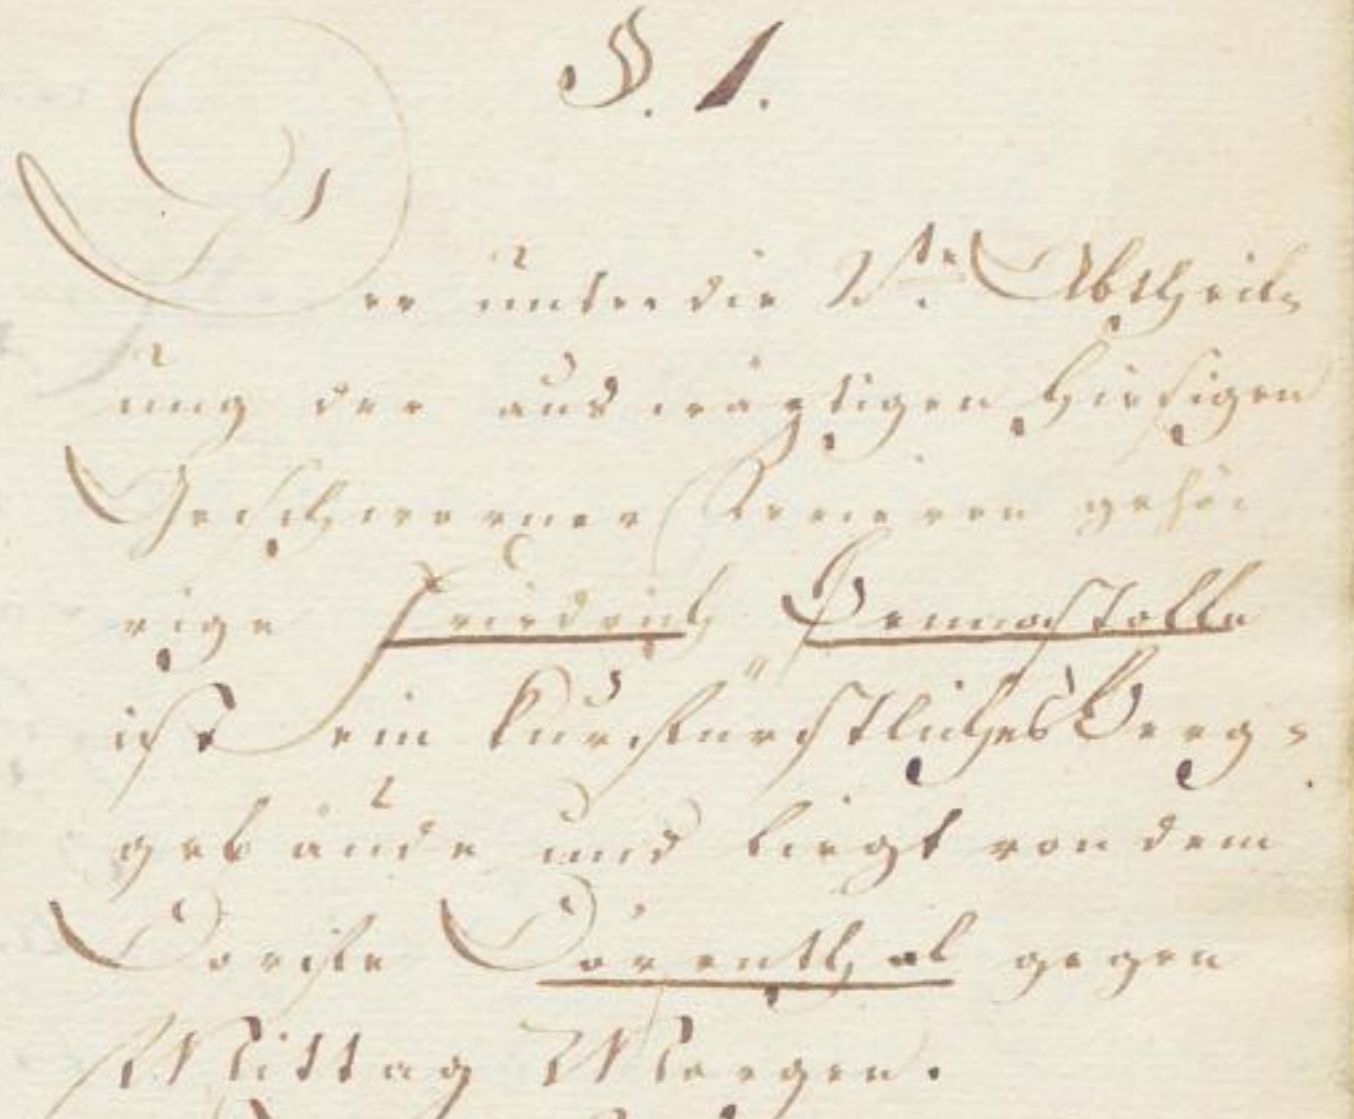 §. 1.
Der unter die Vte Abtheil=
ung der auswärtigen hiesigen
Geschworner Revieren gehö
rige Friedrich Bennostolle
ist ein kurfürstliches Berg=
gebäude und liegt von dem
Dorfe Dörenthal gegen
Mittag Morgen.